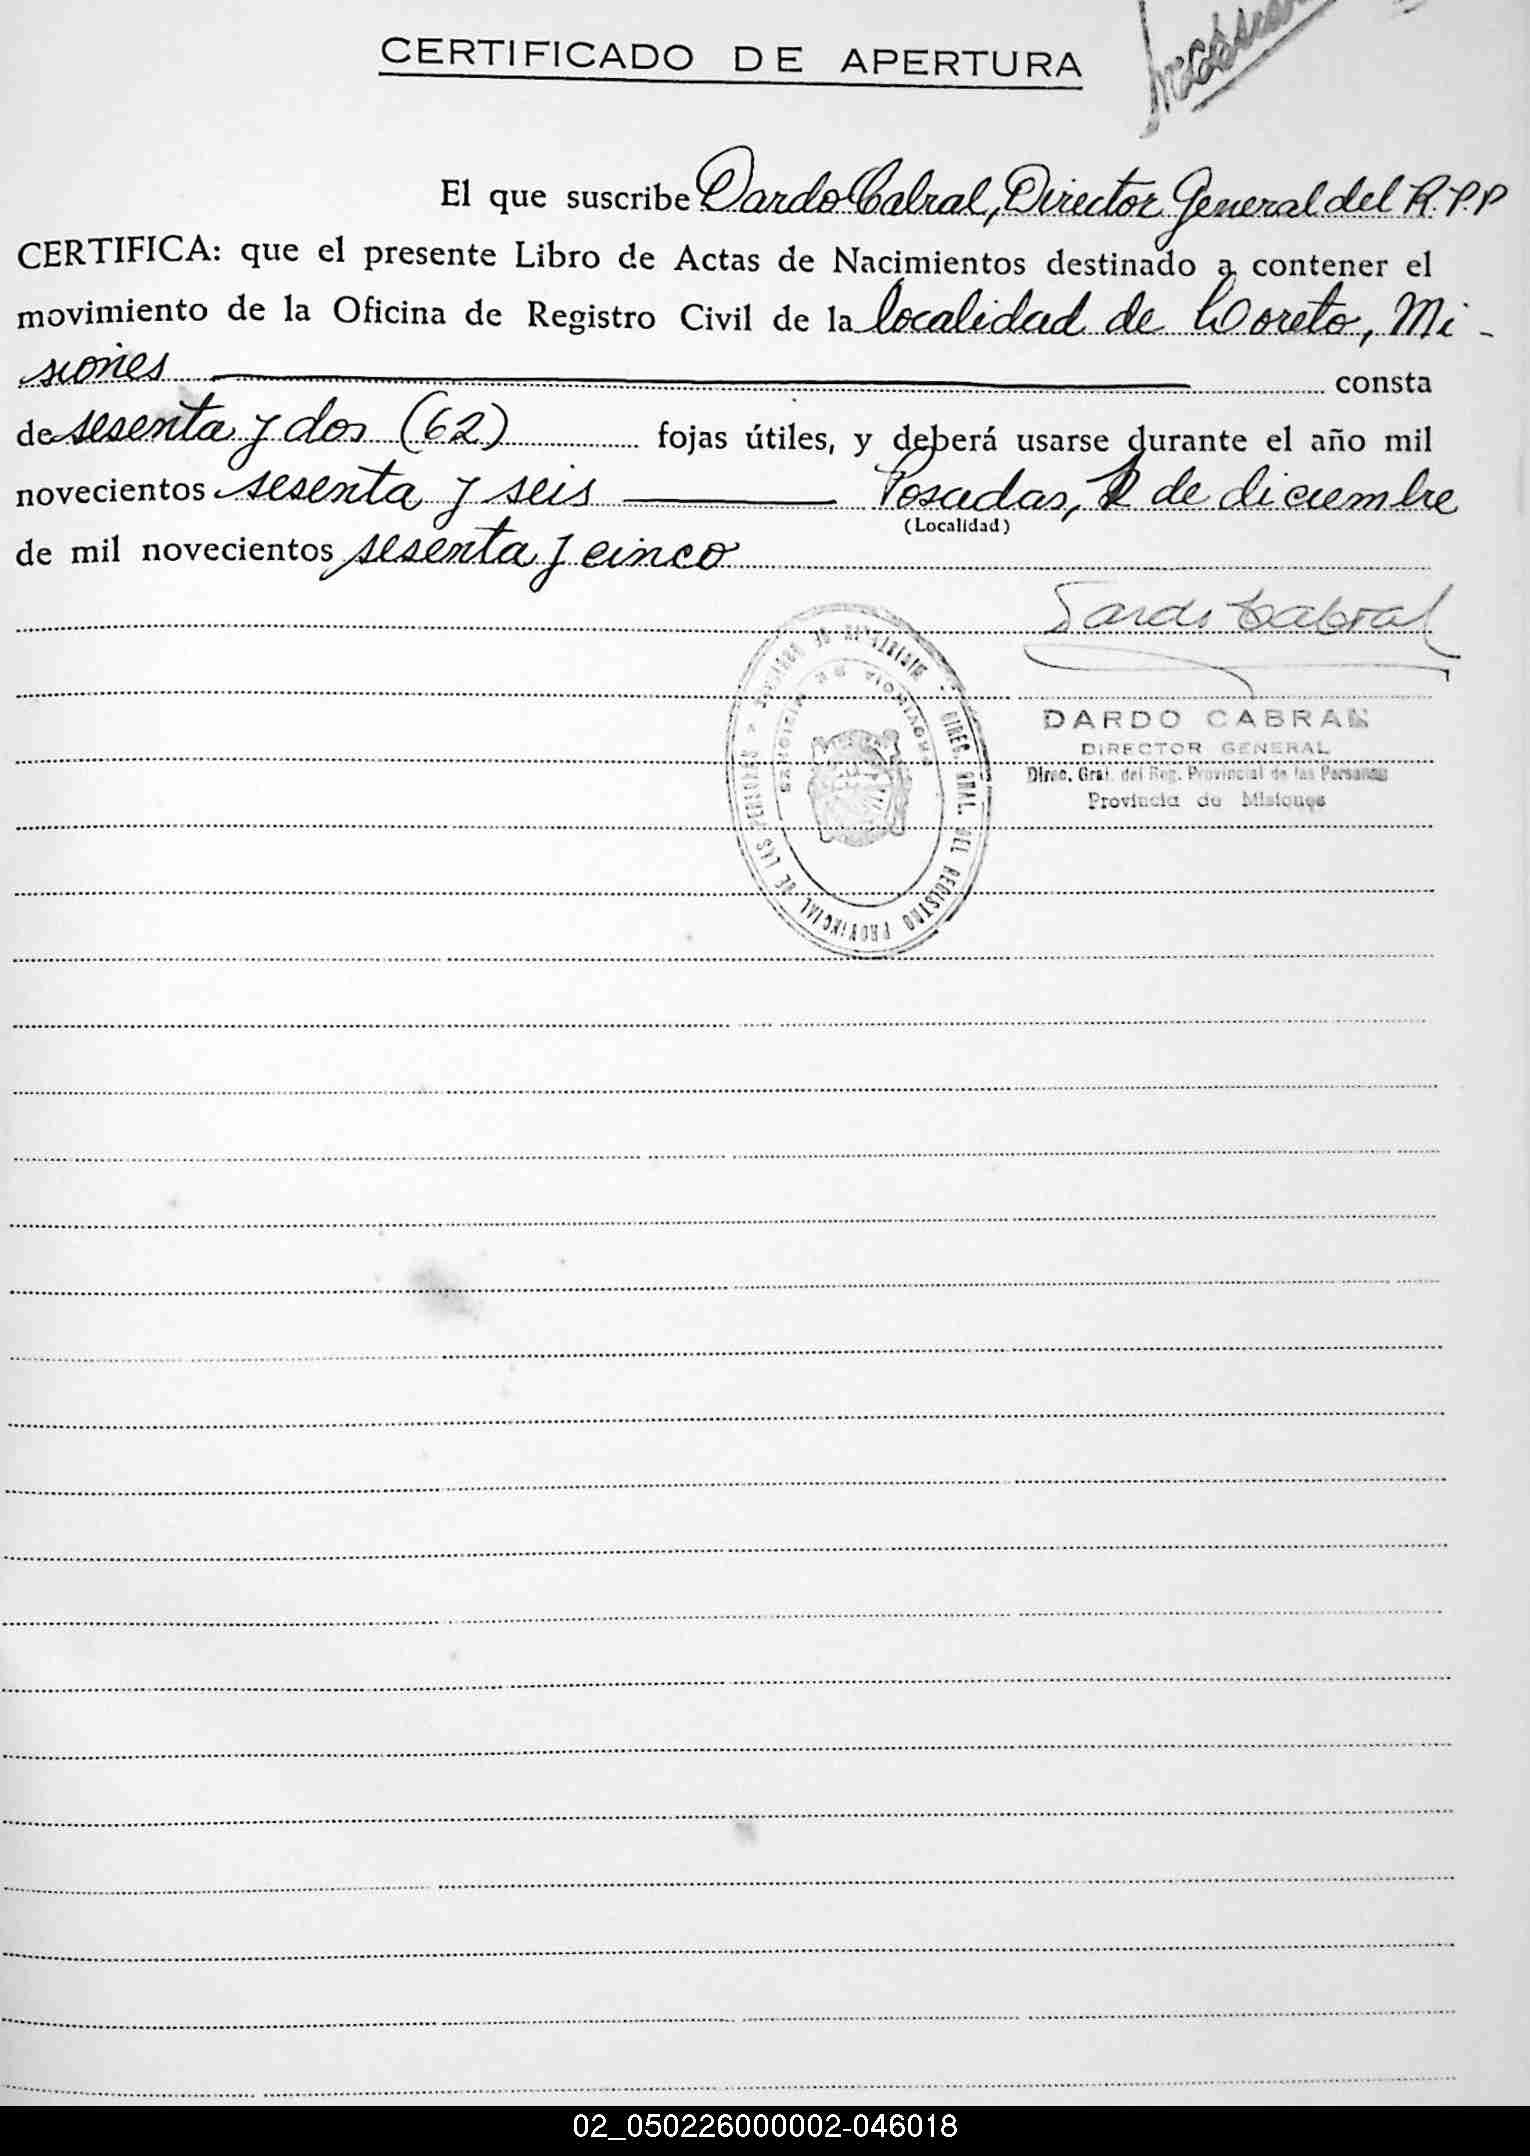 CERTIFICADO DE APERTURA
El que suscribe Dardo Cabral, Director General del R.P.P
CERTIFICA: que el presente Libro de Actas de Nacimientos destinado a contener el
movimiento de la Oficina de Registro Civil de la localidad de Loreto, Mi-
siones consta
de sesenta y dos (62) fojas útiles, y deberá usarse durante el año mil
novecientos sesenta y seis Posadas, de diciembre
(Localidad)
de mil novecientos sesenta y cinco
Dardo Cabral
DARDO CABRAL
DIRECTOR GENERAL
Direc. Gral. del Reg. Provincial de las Personas
Provincia de Misiones
DIREC. GRAL. DEL REGISTRO PROVINCIAL DE LAS PERSONAS
PROVINCIA DE MISIONES
02_050226000002-046018